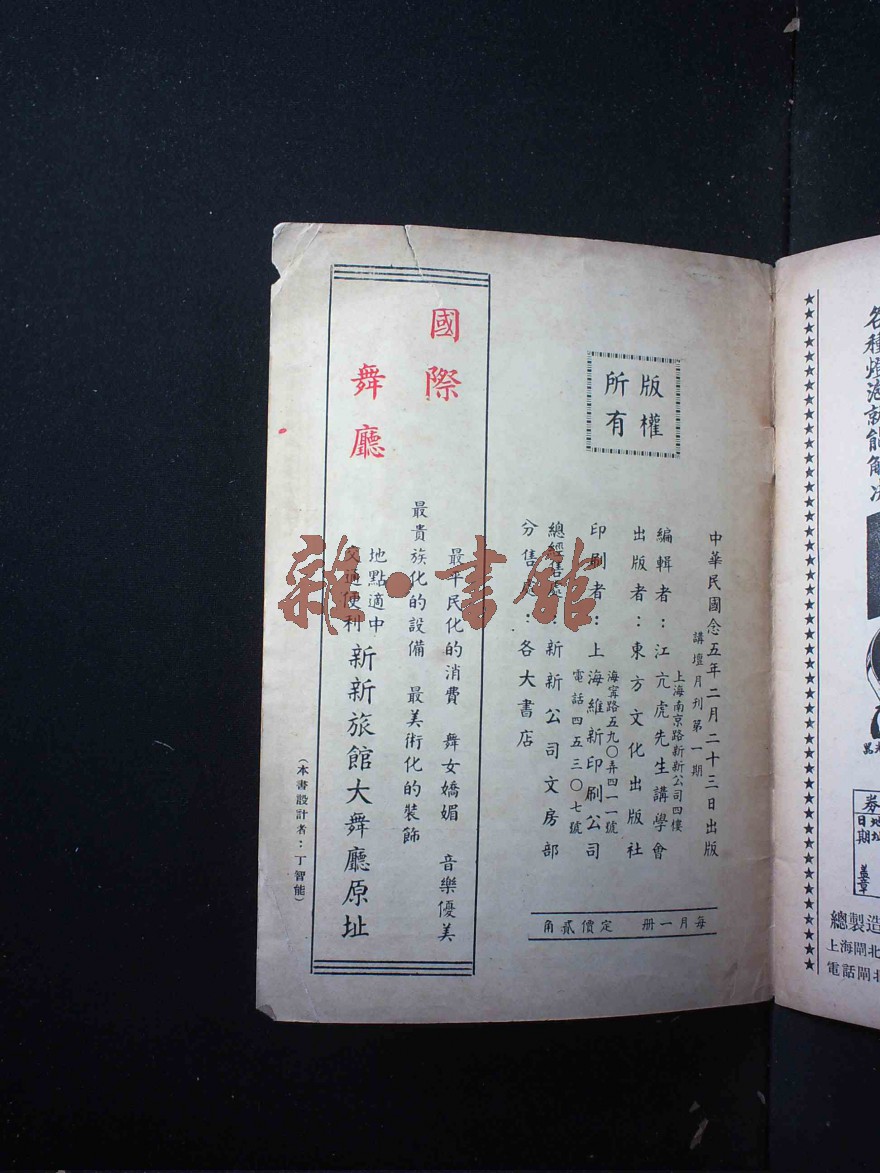 各種煩惱就能解決
券
地址
日期
蓋章
總製造
上海閘北
電話閘北
版權
所有
中華民國念五年二月二十三日出版
講壇月刊第一期
上海南京路新新公司四樓
編輯者：江亢虎先生講學會
出版者：東方文化出版社
印刷者：上海維新印刷公司
海寧路五九〇弄四一一號
電話四五三〇七號
總經售處：新新公司文房部
分售處：各大書店
每月一册 定價貳角
國際
舞廳
最平民化的消費 舞女嬌媚 音樂優美
最貴族化的設備 最美術化的裝飾
地點適中
交通便利
新新旅館大舞廳原址
（本書設計者：丁智能）
雜·書館